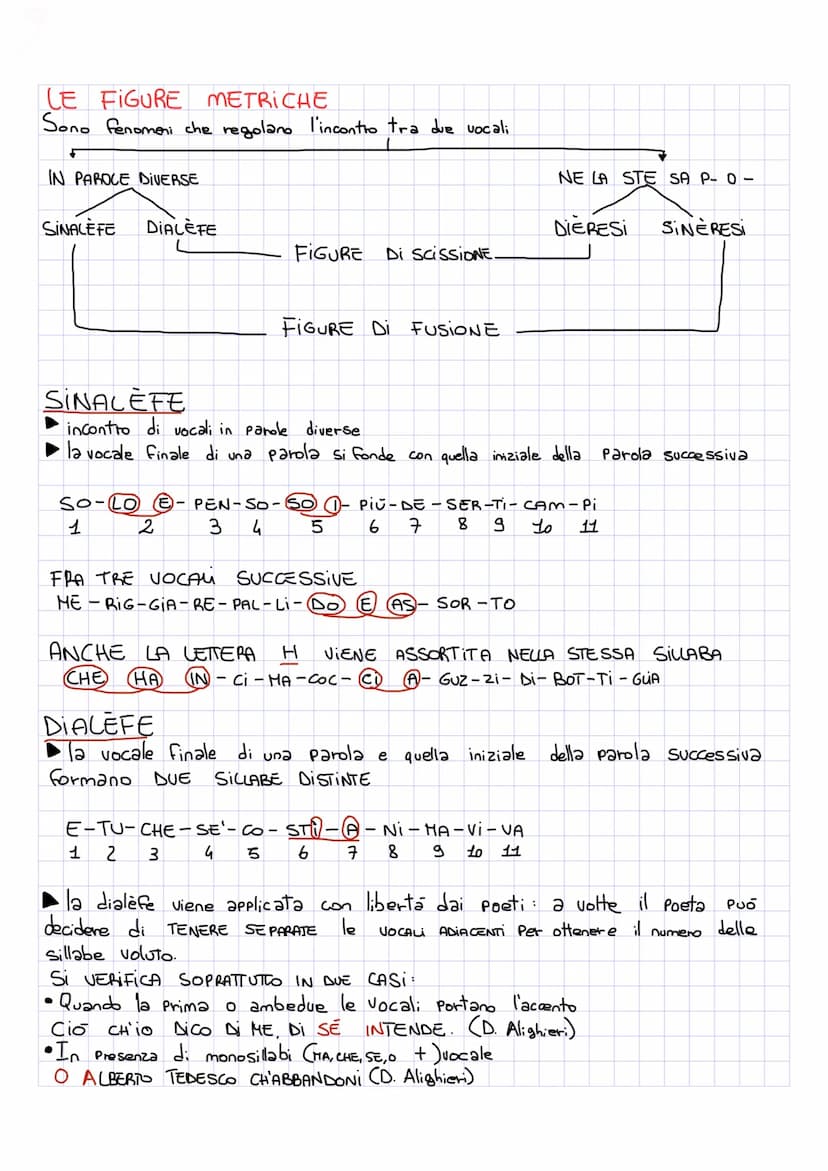 LE FIGURE METRICHE
Sono fenomeni che regolano l'incontro tra due vocali
IN PAROLE DIVERSE NE LA STE SA P- O -
SINALÈFE DIALÈFE DIÈRESI SINÈRESI
FIGURE DI SCISSIONE
FIGURE DI FUSIONE
SINALÈFE
▶ incontro di vocali in parole diverse
▶ la vocale finale di una parola si fonde con quella iniziale della parola successiva
SO-LO E-PEN-SO-SO I-PIÙ-DE-SER-TI-CAM-PI
1 2 3 4 5 6 7 8 9 10 11
FRA TRE VOCALI SUCCESSIVE
ME-RIG-GIA-RE-PAL-LI-DO E AS-SOR-TO
ANCHE LA LETTERA H VIENE ASSORTITA NELLA STESSA SILLABA
CHE HA IN-CI-MA-COC-CI A-GUZ-ZI-DI-BOT-TI-GLIA
DIALÈFE
▶ la vocale finale di una parola e quella iniziale della parola successiva
formano DUE SILLABE DISTINTE
E-TU-CHE-SE'-CO-STÌ-A-NI-MA-VI-VA
1 2 3 4 5 6 7 8 9 10 11
▶ la dialèfe viene applicata con libertà dai poeti: a volte il poeta può
decidere di TENERE SEPARATE le VOCALI ADIACENTI per ottenere il numero delle
sillabe voluto.
SI VERIFICA SOPRATTUTTO IN DUE CASI:
• Quando la prima o ambedue le vocali portano l'accento
CIÒ CH'IO DICO DI ME, DI SÉ INTENDE. (D. Alighieri)
• In presenza di monosillabi (MA, CHE, SE, O +) vocale
O ALBERTO TEDESCO CH'ABBANDONI (D. Alighieri)